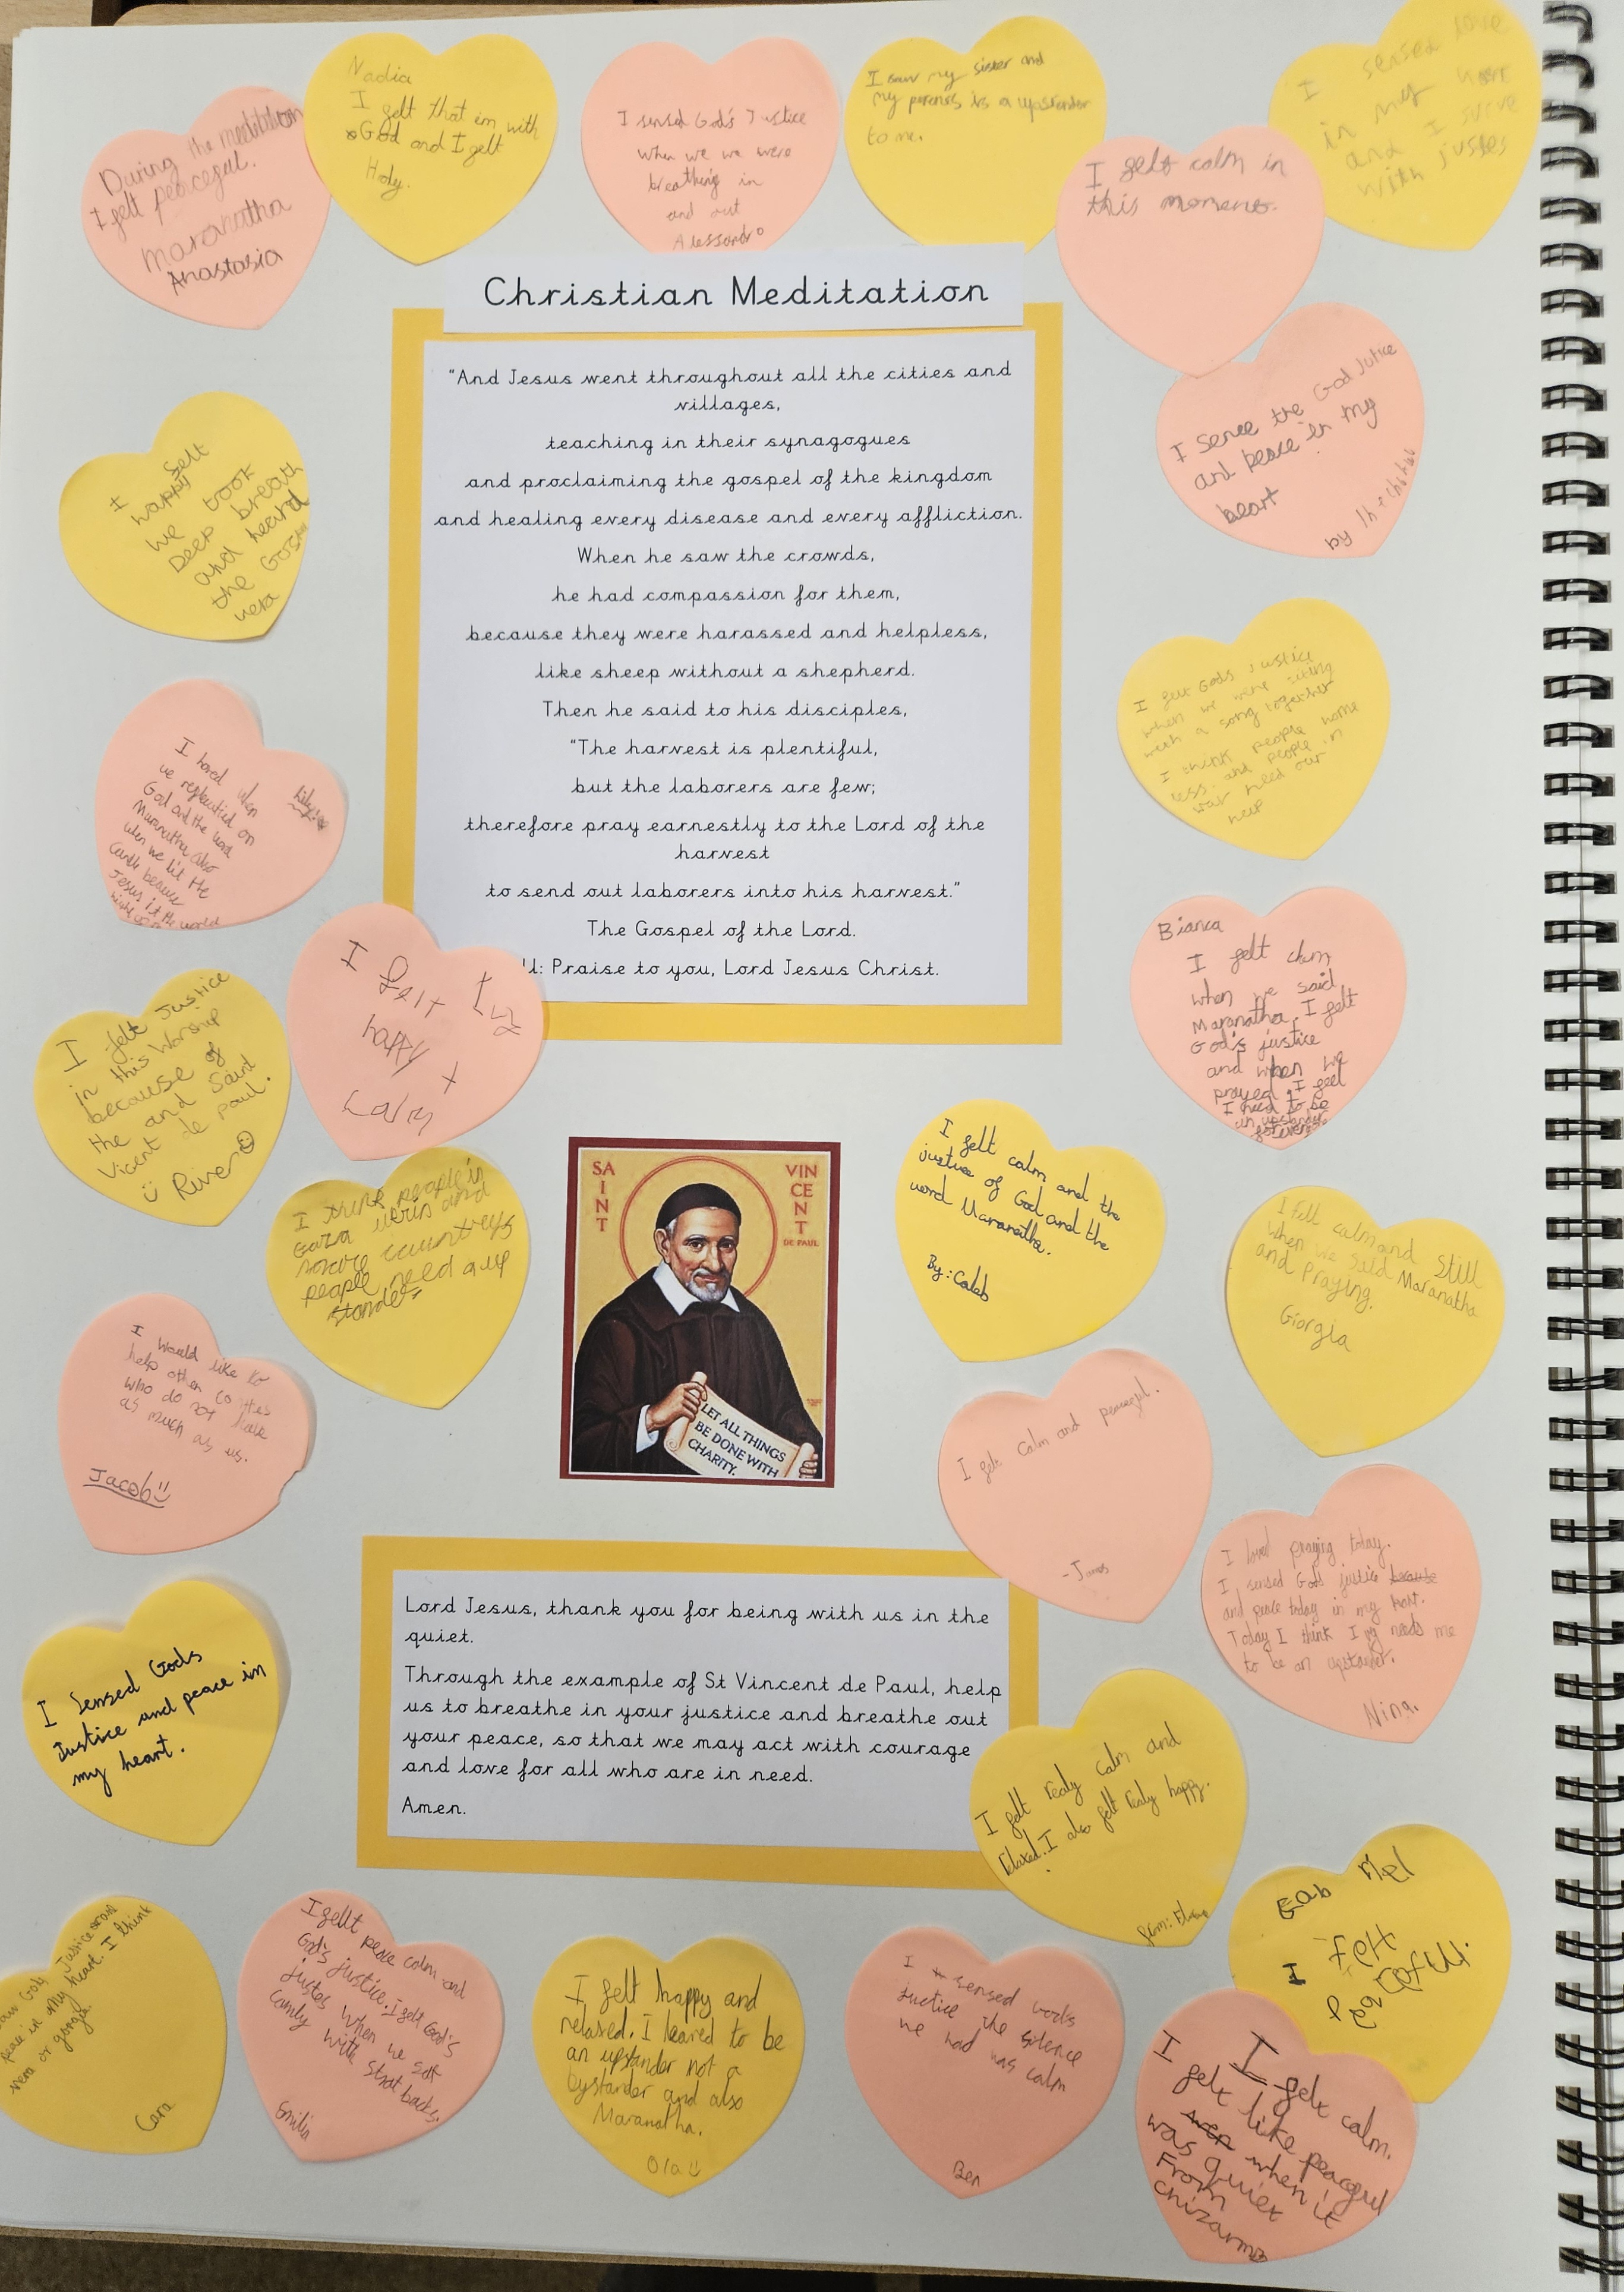 During the meditation
I felt peaceful.
maranatha
Anastasia
Nadia
I felt that im with
God and I felt
Holy.
I sensed God's Justice
when we we were
breathing in
and out
Alessandro
I saw my sister and
my parents is a upstander
to me.
I felt calm in
this moment.
I sensed love
in my
and I
with justes
Christian Meditation
"And Jesus went throughout all the cities and
villages,
teaching in their synagogues
and proclaiming the gospel of the kingdom
and healing every disease and every affliction.
When he saw the crowds,
he had compassion for them,
because they were harassed and helpless,
like sheep without a shepherd.
Then he said to his disciples,
"The harvest is plentiful,
but the laborers are few;
therefore pray earnestly to the Lord of the
harvest
to send out laborers into his harvest."
The Gospel of the Lord.
ll: Praise to you, Lord Jesus Christ.
I sence the God Jutice
and peace in my
heart
by
I felt
happy
we took
Deep breath
and heard
the
vera
I felt Gods justice
when we were siting
with a song together
I think people home
less and people in
war need our
help
I loved when
we reflected on
God and the word
Maranatha also
when we lit the
candle because
Jesus is the world
Bianca
I felt
when we said
Maranatha. I felt
God's justice
and when we
prayed. I feel
I need to be
an upstander
I felt
happy +
calm
I felt Justice
in this Worship
because of
the and Saint
Vicent de paul.
River
I think people in
Gaza
more countrys
people need a up
stander
SAINT
VINCENT
DE PAUL
LET ALL THINGS
BE DONE WITH
CHARITY.
I felt calm and the
justice of God and the
word Maranatha.
By: Caleb
I fell calm and Still
when we said Maranatha
and Praying.
Giorgia
I would like to
help other
who do not have
as much as us.
Jacob
I felt calm and peaceful.
-James
I loved praying today.
I sensed Gods justice because
and peace today in my heart.
Today I think needs me
to be an upstander.
Nina.
Lord Jesus, thank you for being with us in the
quiet.
Through the example of St Vincent de Paul, help
us to breathe in your justice and breathe out
your peace, so that we may act with courage
and love for all who are in need.
Amen.
I Sensed Gods
Justice and peace in
my heart.
I felt realy calm and
relaxed. I also felt realy happy.
I felt
God Justice
peace in my heart. I think
Cara
I fellt peace calm and
God's justice. I felt God's
justes when we sat
with strat backs.
Emilia
I felt happy and
relaxed. I leared to be
an upstander not a
bystander and also
Maranatha.
Ola
I sensed
justice the silence
we had was calm
Ben
I felt calm.
I felt like peacful
when it
was quiet
From